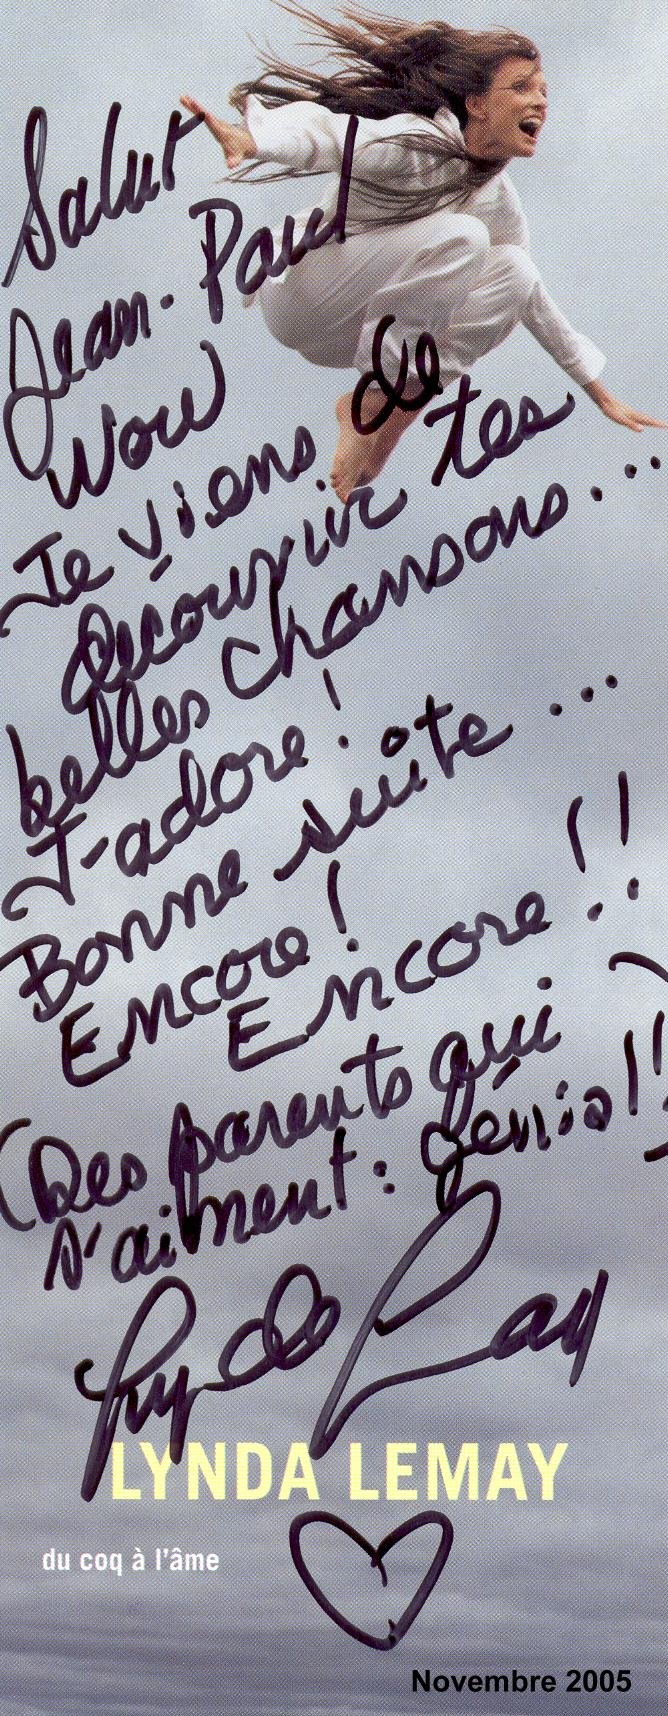 Salut
Jean-Paul
Wow
Je viens de
découvrir tes
belles chansons...
J-adore!
Bonne suite...
Encore!
Encore!!
(Des parents qui
s'aiment: génial!!)
Lynda Lemay
LYNDA LEMAY
du coq à l'âme
Novembre 2005